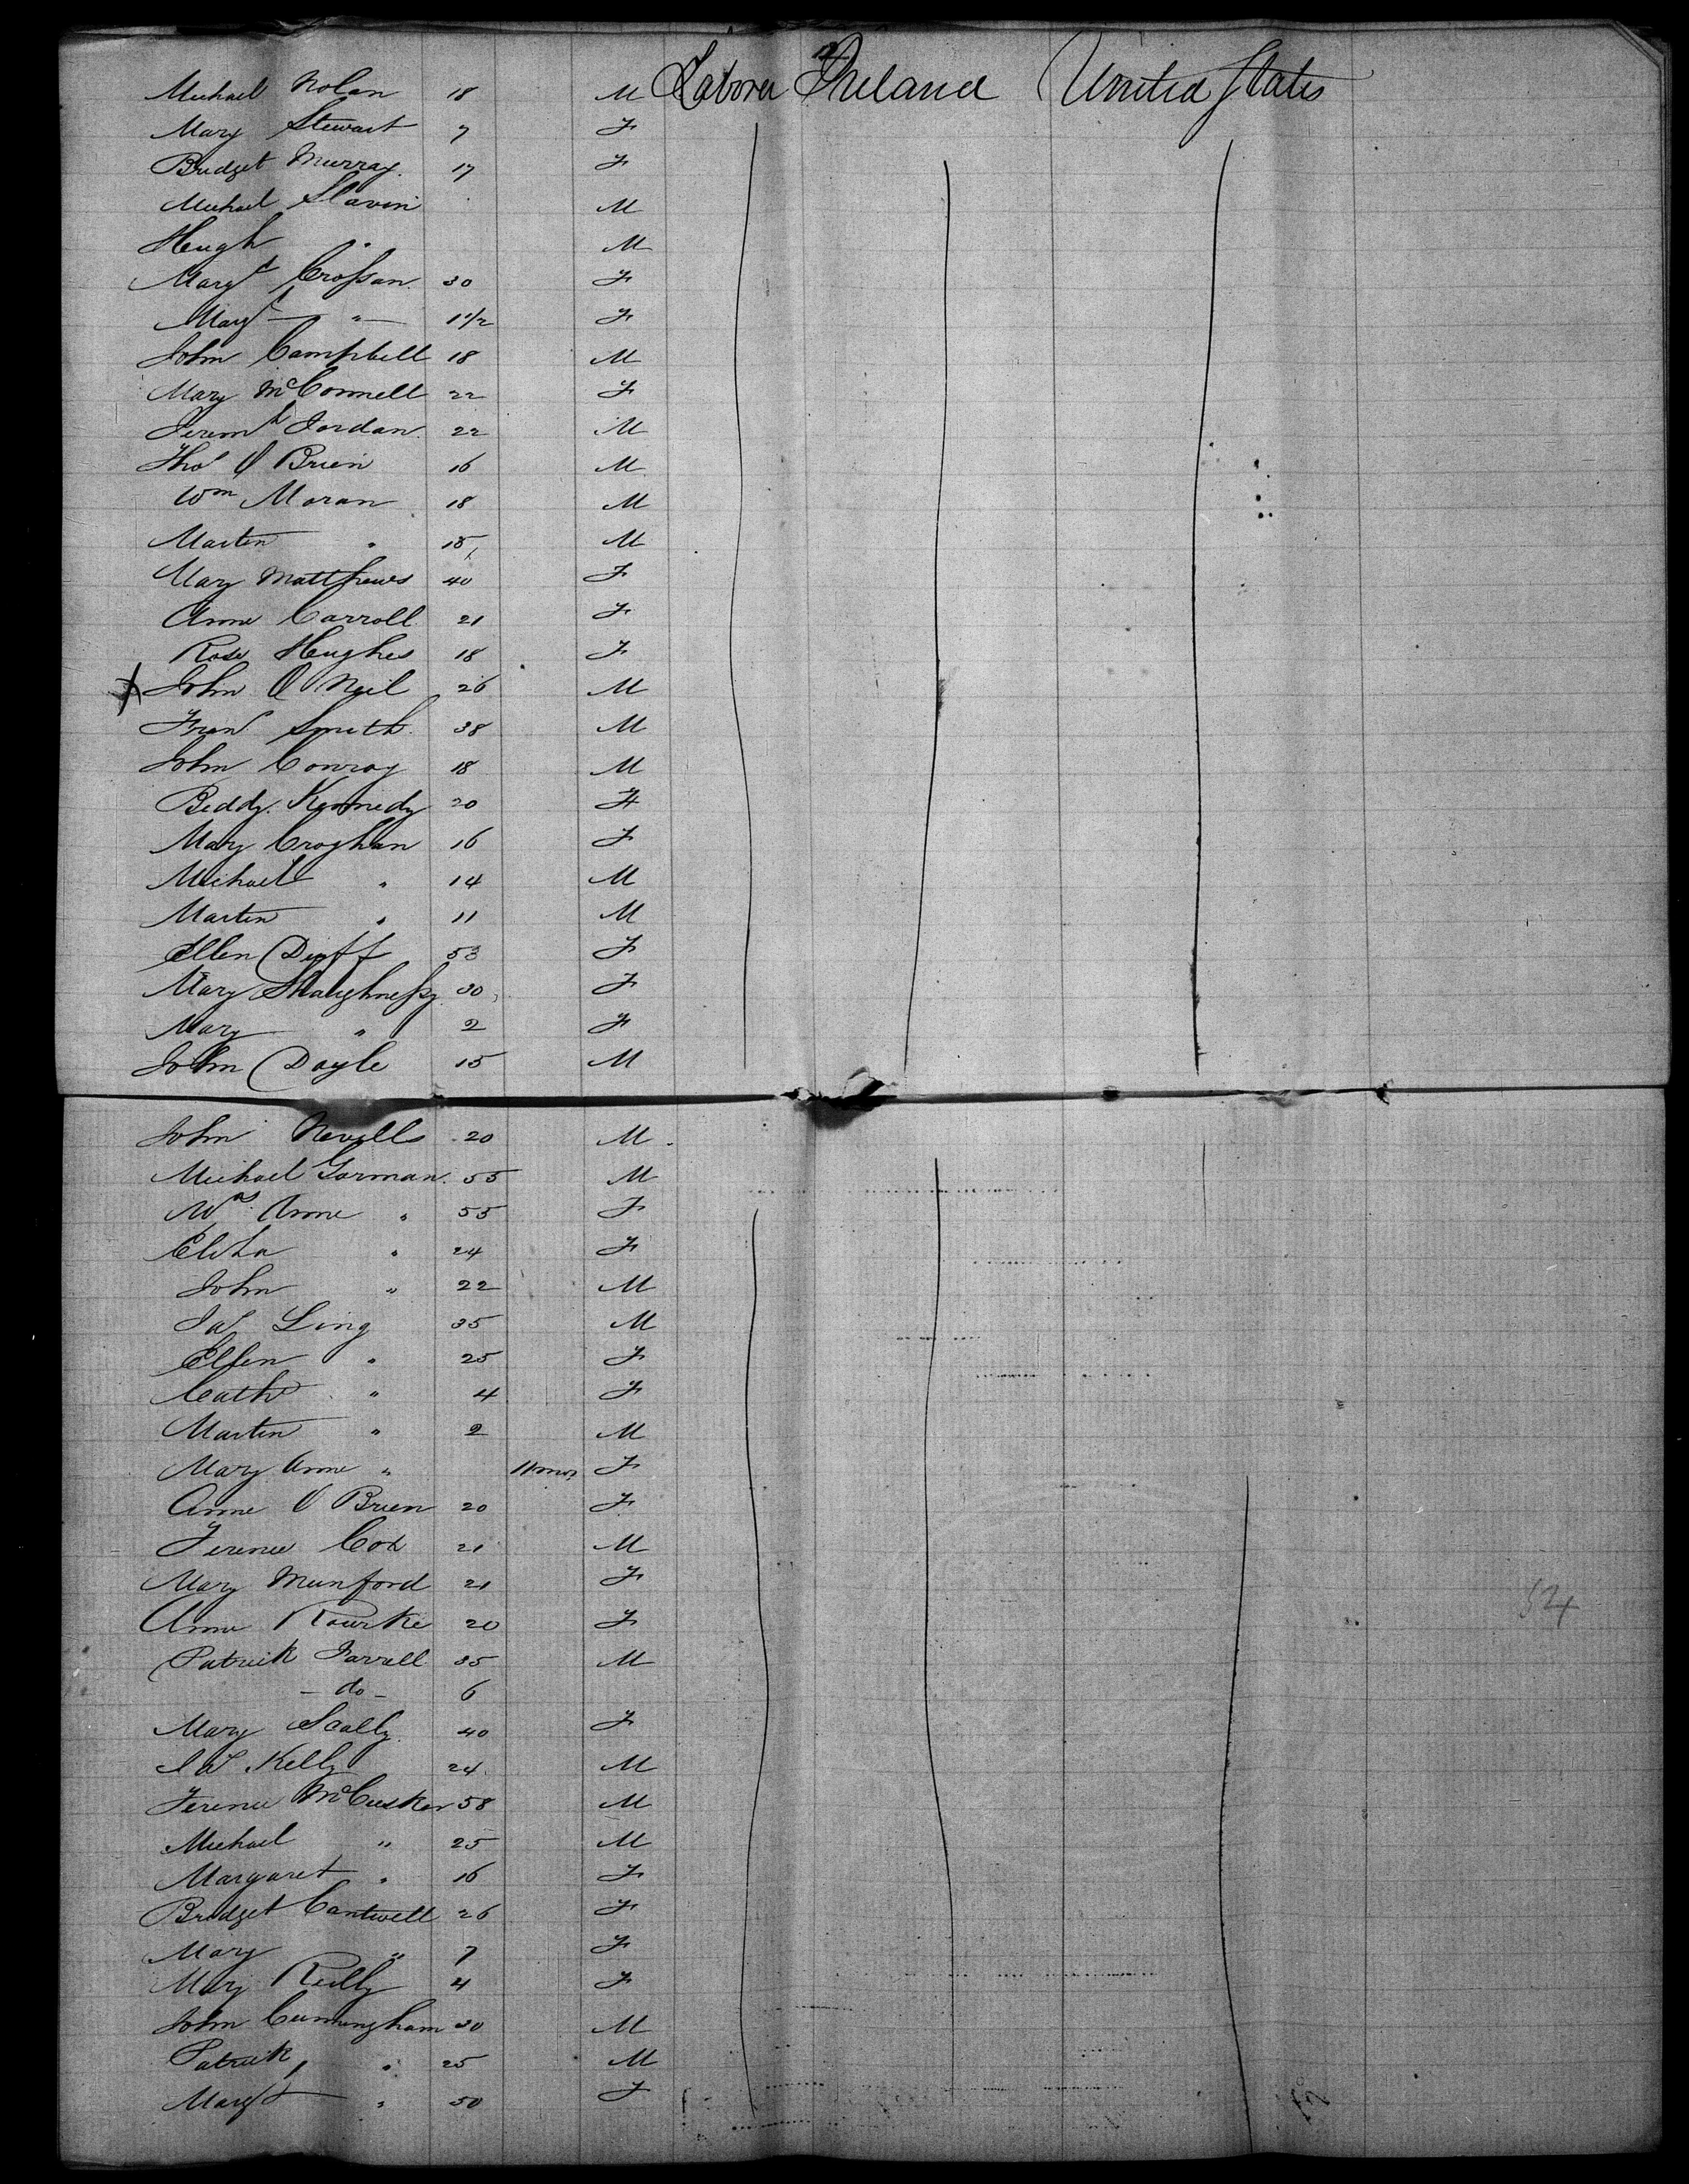 Michael Nolan 18 M Laborer Ireland United States
Mary Stewart 7 F
Bridget Murray. 17 F
Michael Slavin M
Hugh " M
Margt Crossan. 30 F
Margt " 1 1/2 F
John Campbell 18 M
Mary McConnell 22 F
Jeremh Jordan. 22 M
Thos O Brien 16 M
Wm Moran 18 M
Martin " 15 M
Mary Matthews 40 F
Anne Carroll. 21 F
Rose Hughes 18 F
X John O Neil 26 M
Frans Smith. 38 M
John Conroy 18 M
Biddy. Kennedy 20 F
Mary Croghan 16 F
Michael " 14 M
Martin " 11 M
Ellen Duff 53 F
Mary Shaughnessy. 30 F
Mary " 2 F
John Doyle 15 M
John Nevills 20 M
Michael Gorman. 55 M
Mrs. Anne " 55 F
Eliza " 24 F
John " 22 M
Jas Ling 35 M
Ellen " 25 F
Cathe " 4 F
Martin " 2 M
Mary Anne " 11 mos F
Anne O Brien 20 F
Terence Cox 21 M
Mary Munford 21 F
Anne Rourke 20 F
Patrick Farrell 35 M
- do - 6
Mary Scally. 40 F
Jas Kelly 24. M
Terence McCusker 58 M
Michael " 25 M
Margaret " 16 F
Bridget Cantwell 26 F
Mary " 7 F
Mary Reilly 4 F
John Cunningham 30 M
Patrick " 25 M
Margt " 50 F
54